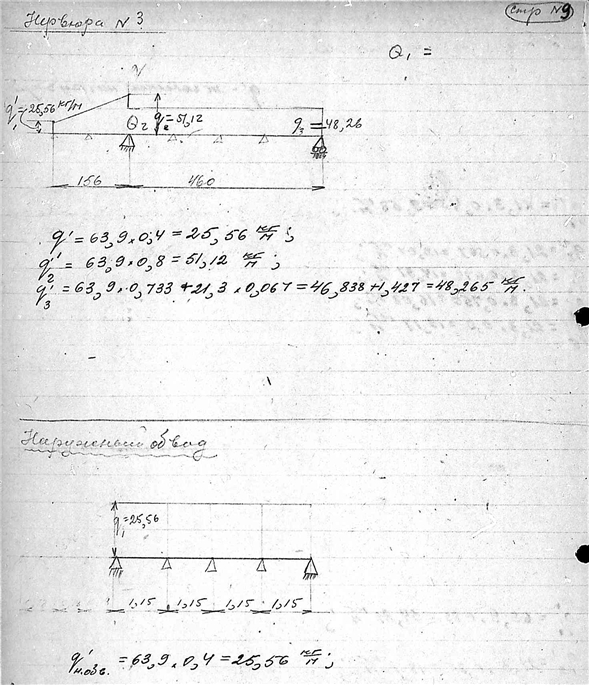 Нервюра № 3
стр № 9
Q₁ =
q'₁=25,56 кг/м
Q₂
q'₂=51,12
q₃=48,26
156
460
q' = 63,9 × 0,4 = 25,56 кг/м ;
q'₂ = 63,9 × 0,8 = 51,12 кг/м ;
q'₃ = 63,9 × 0,733 + 21,3 × 0,067 = 46,838 + 1,427 = 48,265 кг/м .
Наружный обвод
q'₁=25,56
1,15 1,15 1,15 1,15
q'н.обв. = 63,9 × 0,4 = 25,56 кг/м ;